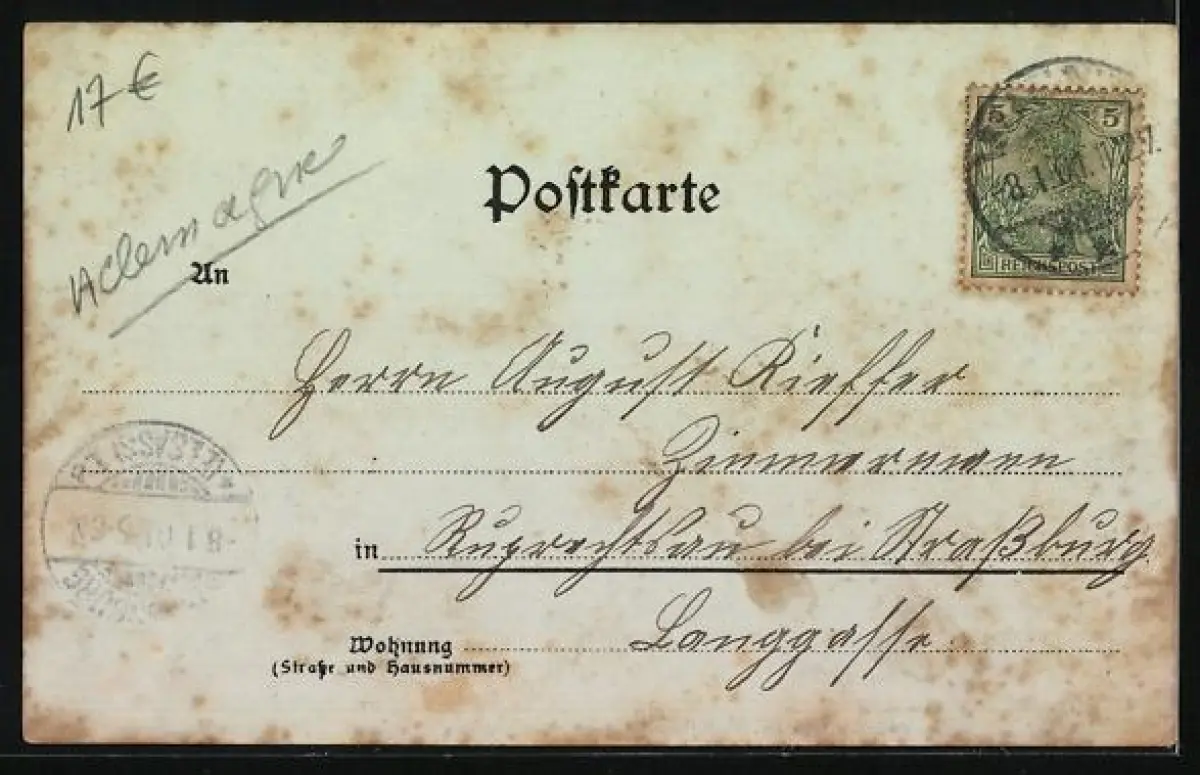 17 €
Allemagne
Postkarte
5 5
REICHSPOST
8.1.01
An
Herrn August Kieffer
Zimmermann
in Ruprechtsau bei Straßburg
8.1.01
Langgasse
Wohnung
(Straße und Hausnummer)